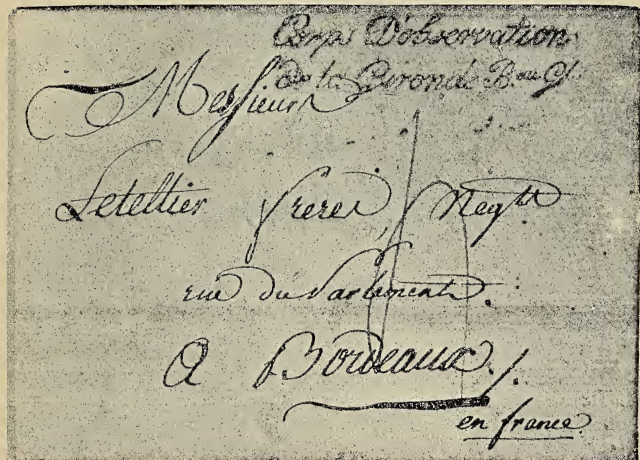 Corps D'observation
de la Gironde B.au G.l
Messieurs
Letellier freres, Neg.ts
rue du Parlement.
A Bordeaux.
en france